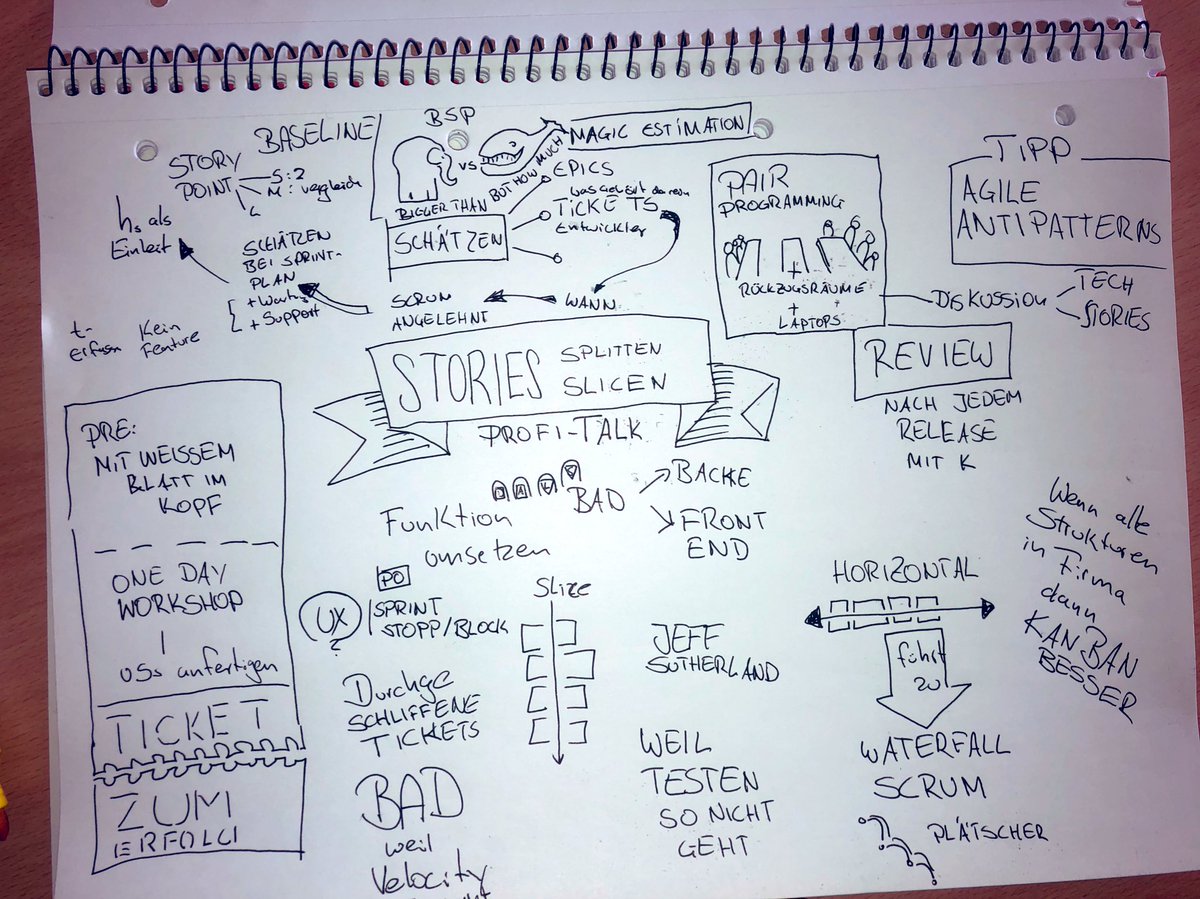 BASELINE
STORY
POINT
S : 2
M : vergleich
L
hs als
Einheit
SCHÄTZEN
BEI SPRINT-
PLAN
+ Wartung
+ Support
t-
erfassn
Kein
Feature
BSP
VS
BIGGER THAN
BUT HOW MUCH
MAGIC ESTIMATION
SCHÄTZEN
EPICS
was gehört da rein
TICKETS
Entwickler
WANN
SCRUM
ANGELEHNT
PAIR
PROGRAMMING
+
RÜCKZUGSRÄUME
+
LAPTOPS
TIPP
AGILE
ANTIPATTERNS
DISKUSSION
TECH
STORIES
REVIEW
NACH JEDEM
RELEASE
MIT K
STORIES SPLITTEN
SLICEN
PROFI-TALK
PRE:
MIT WEISSEM
BLATT IM
KOPF
ONE DAY
WORKSHOP
USs anfertigen
TICKET
ZUM
ERFOLG
Funktion
umsetzen
BAD
BACKE
FRONT
END
PO
UX
?
SPRINT
STOPP/BLOCK
Durchge
SCHLIFFENE
TICKETS
BAD
weil
Velocity
Slize
JEFF
SUTHERLAND
WEIL
TESTEN
SO NICHT
GEHT
HORIZONTAL
führt
zu
WATERFALL
SCRUM
PLÄTSCHER
Wenn alte
Strukturen
in Firma
dann
KANBAN
BESSER